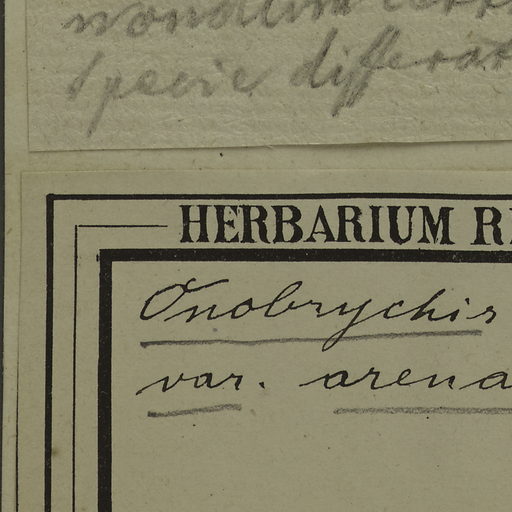 nondum
specie differat
HERBARIUM R
Onobrychis
var. arena